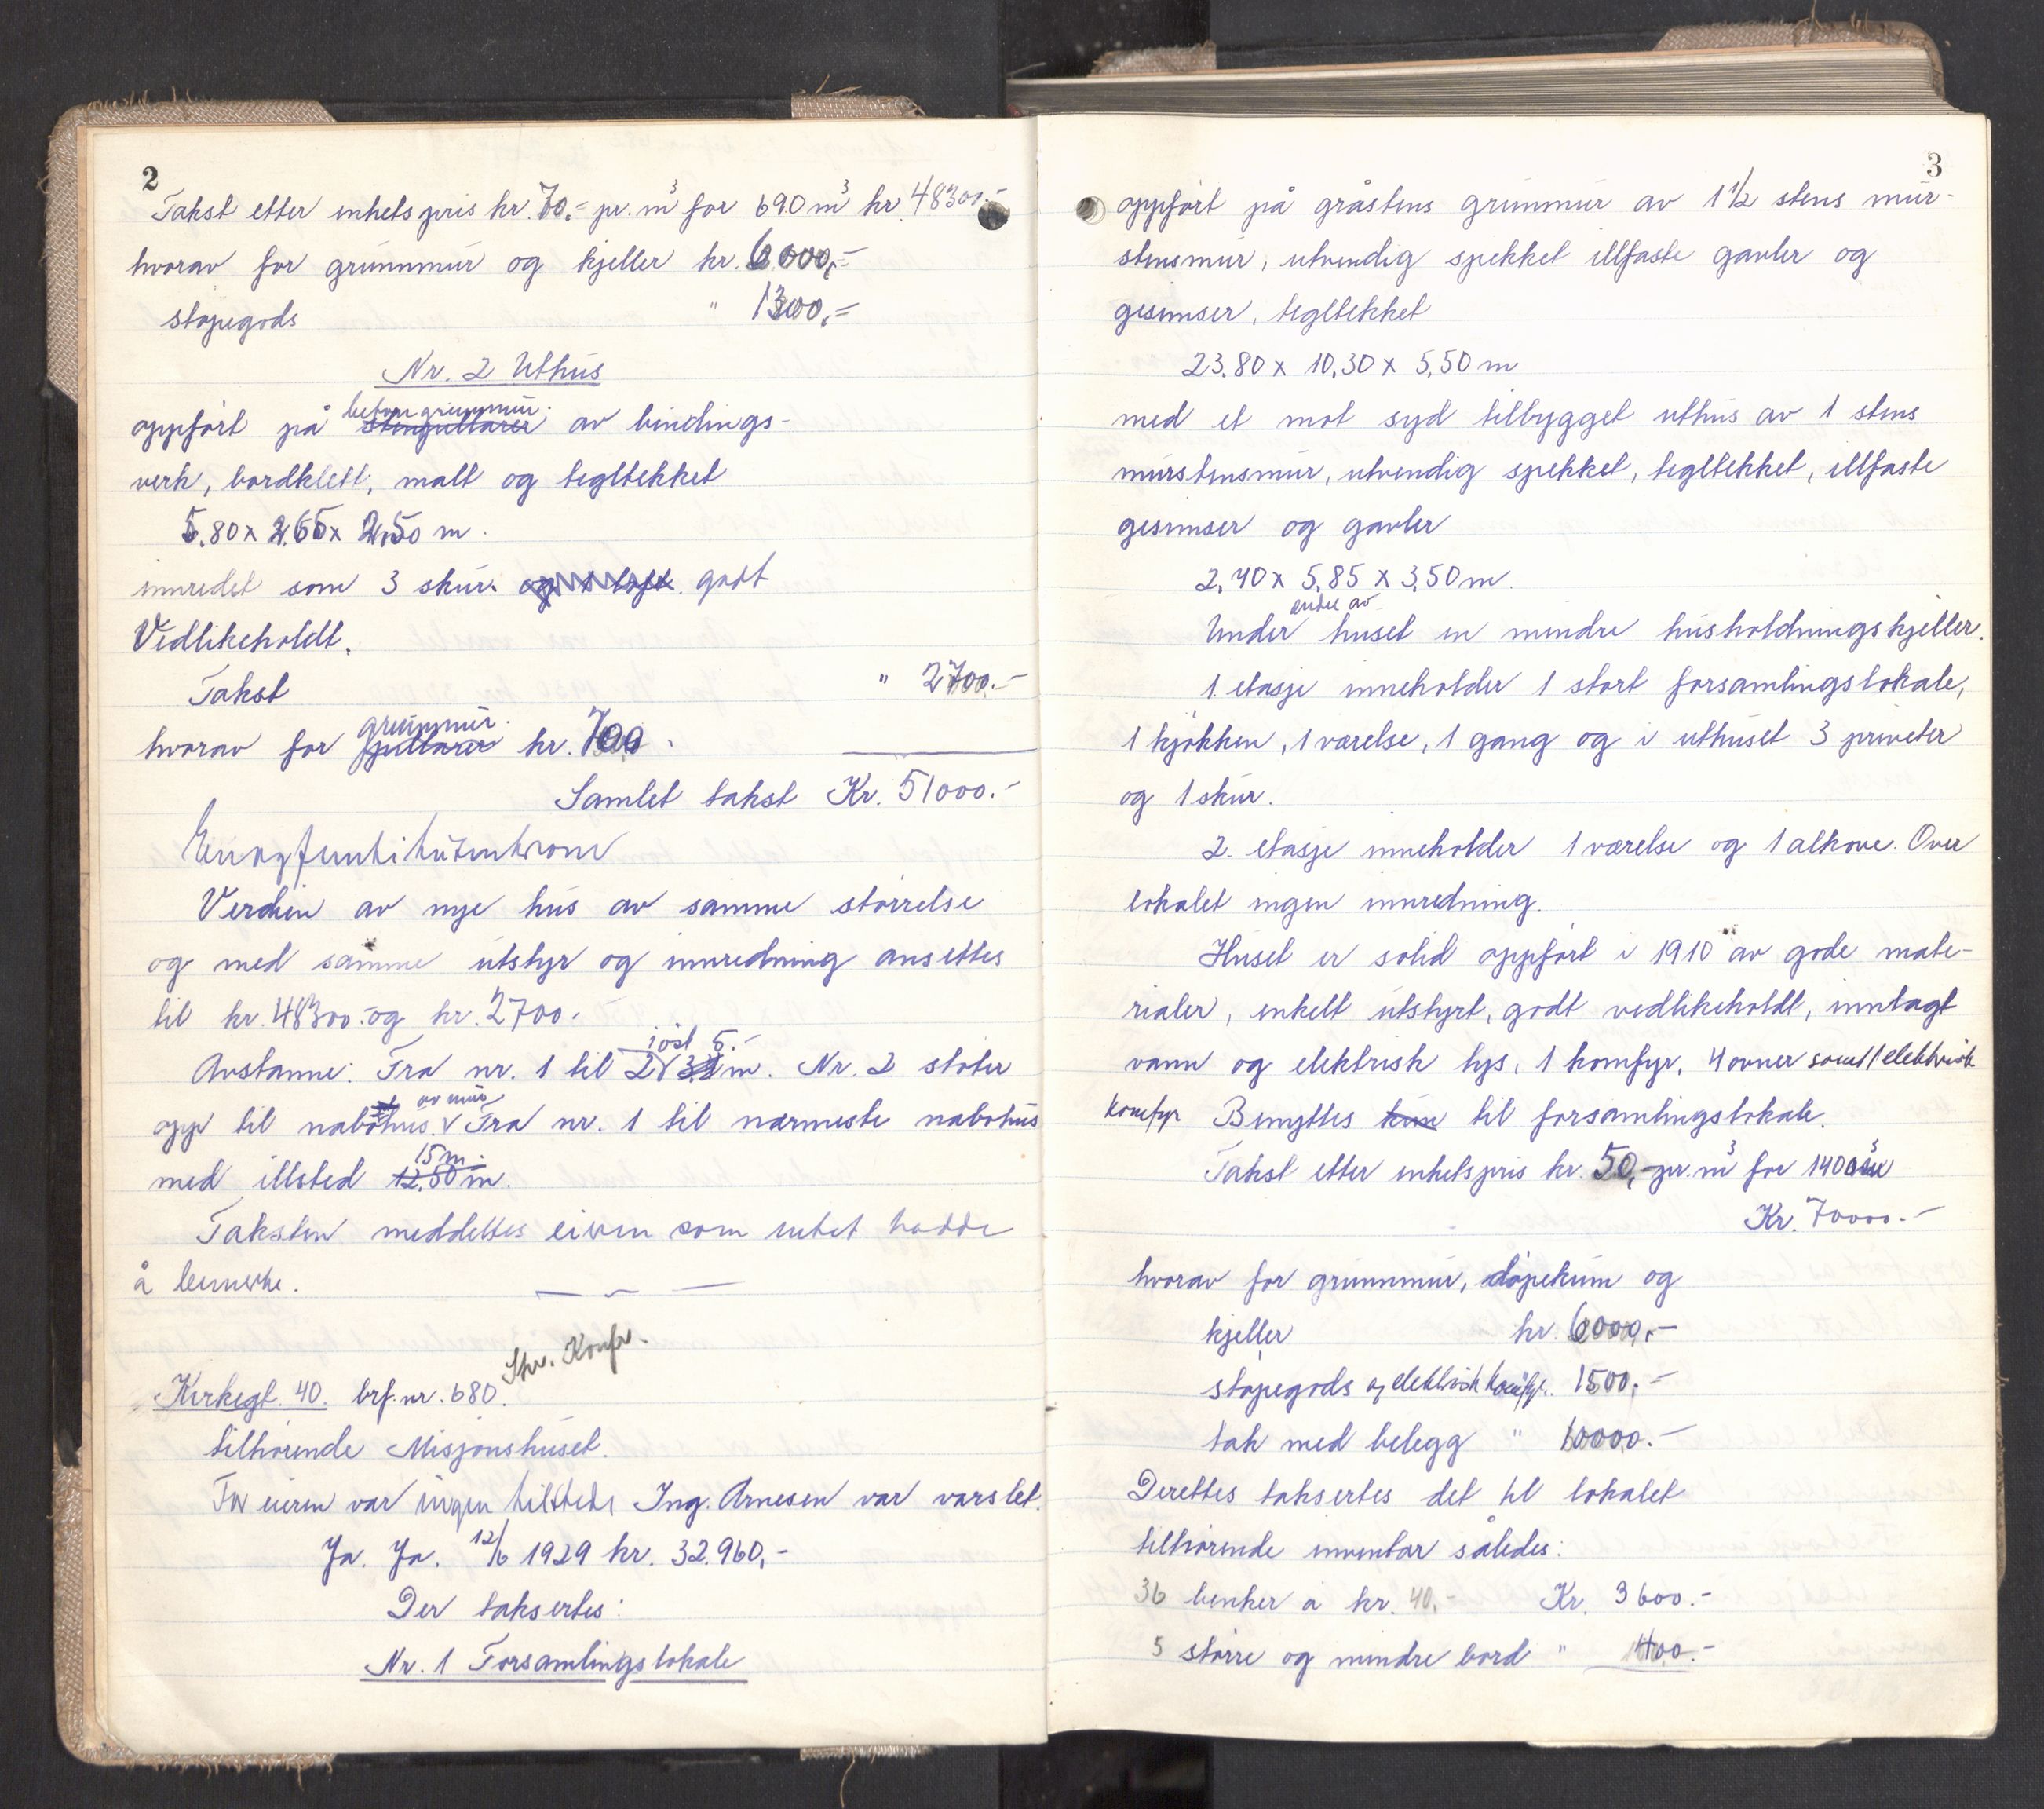 2
Takst etter enhetspris kr. 70.- pr. m³ for 690 m³ kr. 48300.-
hvorav for grunnmur og kjeller kr. 6000,-
støpegods " 1300,-
Nr. 2 Uthus
betongrunnmur.
oppført på stenpillarer av bindings-
verk, bordklett, malt og tegltekket
5.80 x 2.65 x 2.50 m.
innredet som 3 skur. og 1 loft. godt
Vedlikeholdt.
Takst " 2700.-
grunnmur.
hvorav for pillarer kr. 700.
Samlet takst Kr. 51000.-
Verdien av nye hus av samme størrelse
og med samme utstyr og innredning ansettes
til kr. 48300.- og kr. 2700.
i øst 5.-
Avstanne: Fra nr. 1 til 2 m. Nr. 2 støter
av mur
opp til nabohus. Fra nr. 1 til nærmeste nabohus
15 m.
med illsted 12.50 m.
Taksten meddeltes eieren som intet hadde
å bemerke.
Spr. Konfr.
Kirkegt. 40. brf. nr. 680.
tilhørende Misjonshuset.
For eieren var ingen tilstede, Ing. Arnesen var varslet.
Ja. Ja. 12/6 1929 kr. 32.960,-
Der taksertes:
Nr. 1 Forsamlingslokale
3
oppført på gråstens grunnmur av 1 1/2 stens mur-
stensmur, utvendig spekket illfaste gavler og
gesimser, tegltekket
23.80 x 10,30 x 5,50 m
med et mot syd tilbygget uthus av 1 stens
murstensmur, utvendig spekket, tegltekket, illfaste
gesimser og gavler
2,40 x 5,85 x 3,50 m.
endel av
Under huset en mindre husholdningskjeller.
1. etasje inneholder 1 stort forsamlingslokale,
1 kjøkken, 1 værelse, 1 gang og i uthuset 3 priveter
og 1 skur.
2. etasje inneholder 1 værelse og 1 alkove. Over
lokalet ingen innredning.
Huset er solid oppført i 1910 av gode mate-
rialer, enkelt utstyrt, godt vedlikeholdt, innlagt
vann og elektrisk lys, 1 komfyr, 4 ovner samt 1 elektrisk
komfyr Benyttes kun til forsamlingslokale.
Takst etter enhetspris kr. 50,- pr. m³ for 1400 m³
Kr. 70000.-
hvorav for grunnmur, døpekum og
kjeller kr. 6000,-
støpegods og elektrisk komfyr. 1500.-
tak med belegg " 10000.-
Derettes taksertes det til lokalet
tilhørende inventar således:
36 benker a kr. 40,- Kr. 3600.-
5 større og mindre bord " 400.-